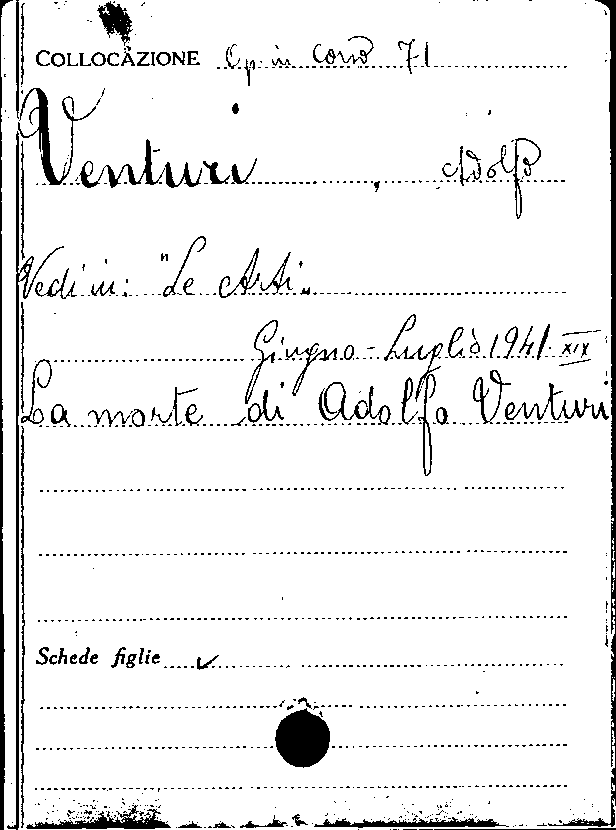 COLLOCAZIONE Op. in corso 71
Venturi, Adolfo
Vedi in: "Le Arti"
Giugno - Luglio 1941 - XIX
La morte di Adolfo Venturi
Schede figlie ✓